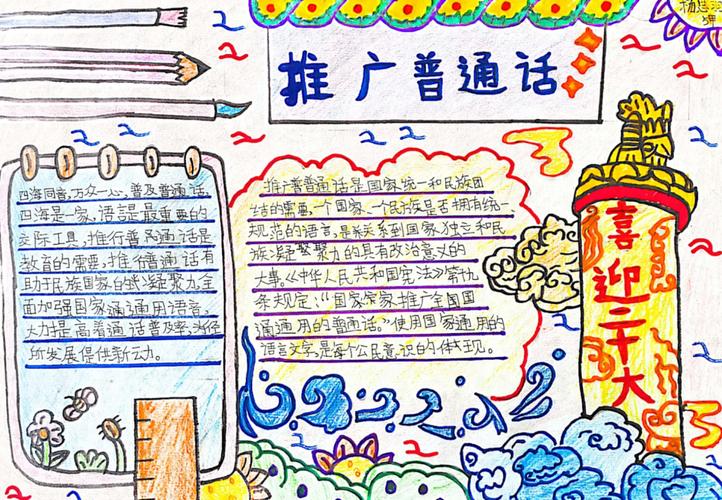 推广普通话
四海同音,万众一心,普及普通话,
四海是一家,语言是最重要的
交际工具,推行普通话是
教育的需要,推行普通话有
助于民族国家的凝聚力,全
面加强国家通用语言,
大力提高普通话普及率,
所发展提供新动力。
推广普通话是国家统一和民族团
结的需要,一个国家、一个民族是否拥有统一、
规范的语言,是关系到国家独立和民
族凝聚力的具有政治意义的
大事。《中华人民共和国宪法》第九
条规定:“国家推广全国
通用的普通话。”使用国家通用的
语言文字,是每个公民意识的体现。
喜迎二十大